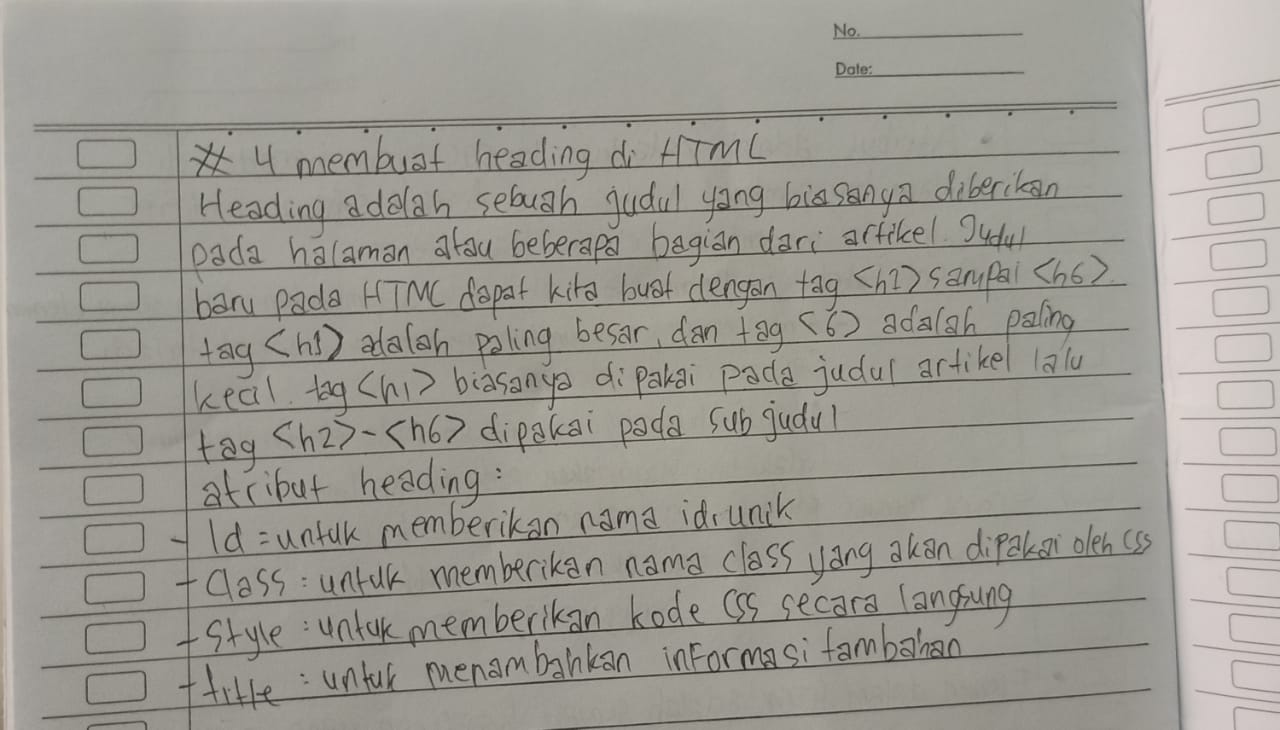 No.
Date:
# 4 membuat heading di HTML
Heading adalah sebuah judul yang biasanya diberikan
pada halaman atau beberapa bagian dari artikel. Judul
baru pada HTML dapat kita buat dengan tag <h1> sampai <h6>.
tag <h1> adalah paling besar, dan tag <6> adalah paling
kecil. tag <h1> biasanya dipakai pada judul artikel lalu
tag <h2>-<h6> dipakai pada sub judul
atribut heading:
- Id = untuk memberikan nama id unik
- Class : untuk memberikan nama class yang akan dipakai oleh CSS
- Style : untuk memberikan kode CSS secara langsung
- title : untuk menambahkan informasi tambahan